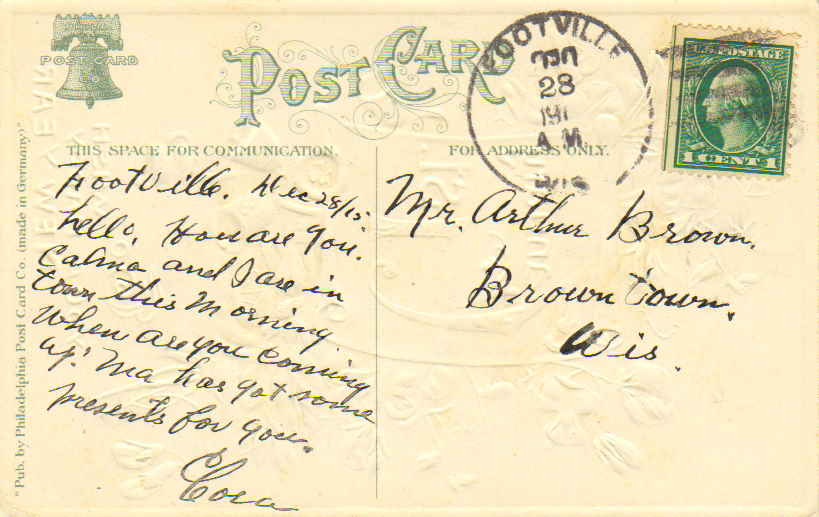 POST CARD
POST CARD
FOOTVILLE
DEC
28
191
A M
WIS
U.S. POSTAGE
1 CENT 1
THIS SPACE FOR COMMUNICATION.
FOR ADDRESS ONLY.
Footville. Dec 28/15
hello, How are you.
Calma and I are in
town this morning
When are you coming
up. Ma has got some
presents for you.
Cora
Mr. Arthur Brown.
Browntown.
Wis.
"Pub. by Philadelphia Post Card Co. (made in Germany)"